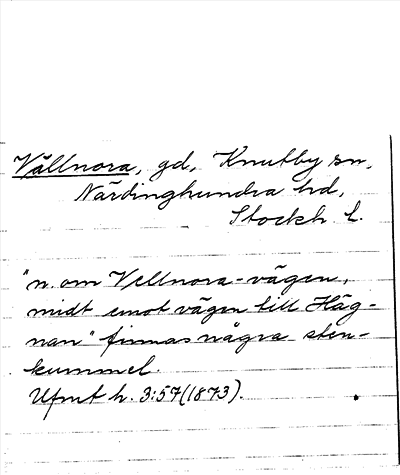 Vällnora, gd, Knutby sn,
Närdinghundra hd,
Stockh. l.
"n. om Vellnora-vägen,
midt emot vägen till Häg-
nan" finnas några sten-
kummel.
Upmt h. 3:57 (1873).